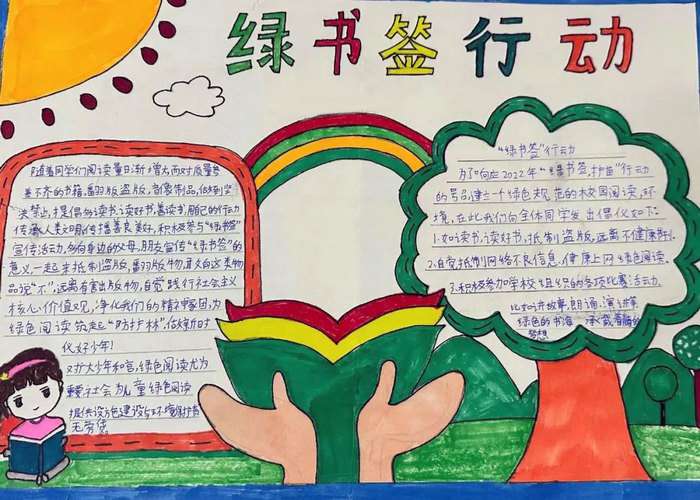 绿书签行动
随着同学们阅读量日渐增大而对质量参
差不齐的书籍,翻版盗版,音像制品,做到坚
决禁止,提倡多读书,读好书,善读书,用自己的行动
传承人类文明,传播善良美好,积极参与“绿书签”
宣传活动,多向身边的父母,朋友宣传“绿书签”的
意义,一起来抵制盗版,翻版物,真大向这类物
品说“不”,远离有害出版物,自觉践行社会主义
核心价值观,净化我们的精神家园,为
绿色阅读筑起“防护林”,做新时
代好少年!
对广大少年和言,绿色阅读尤为
重要社会为儿童绿色阅读
提供设施建设与环境
无旁贷。
“绿书签”行动
为了响应2022年“绿书签,护苗”行动
的号召,建立一个绿色规范的校园阅读,环
境,在此我们向全体同学发出倡仪如下:
1.如读书,读好书,抵制盗版,远离不健康
2.自觉抵制网络不良信息,健康上网绿色阅读.
3.积极参加学校组织的各项比赛活动.
比如讲故事,朗诵,演讲等
绿色的书海 承载着
梦想